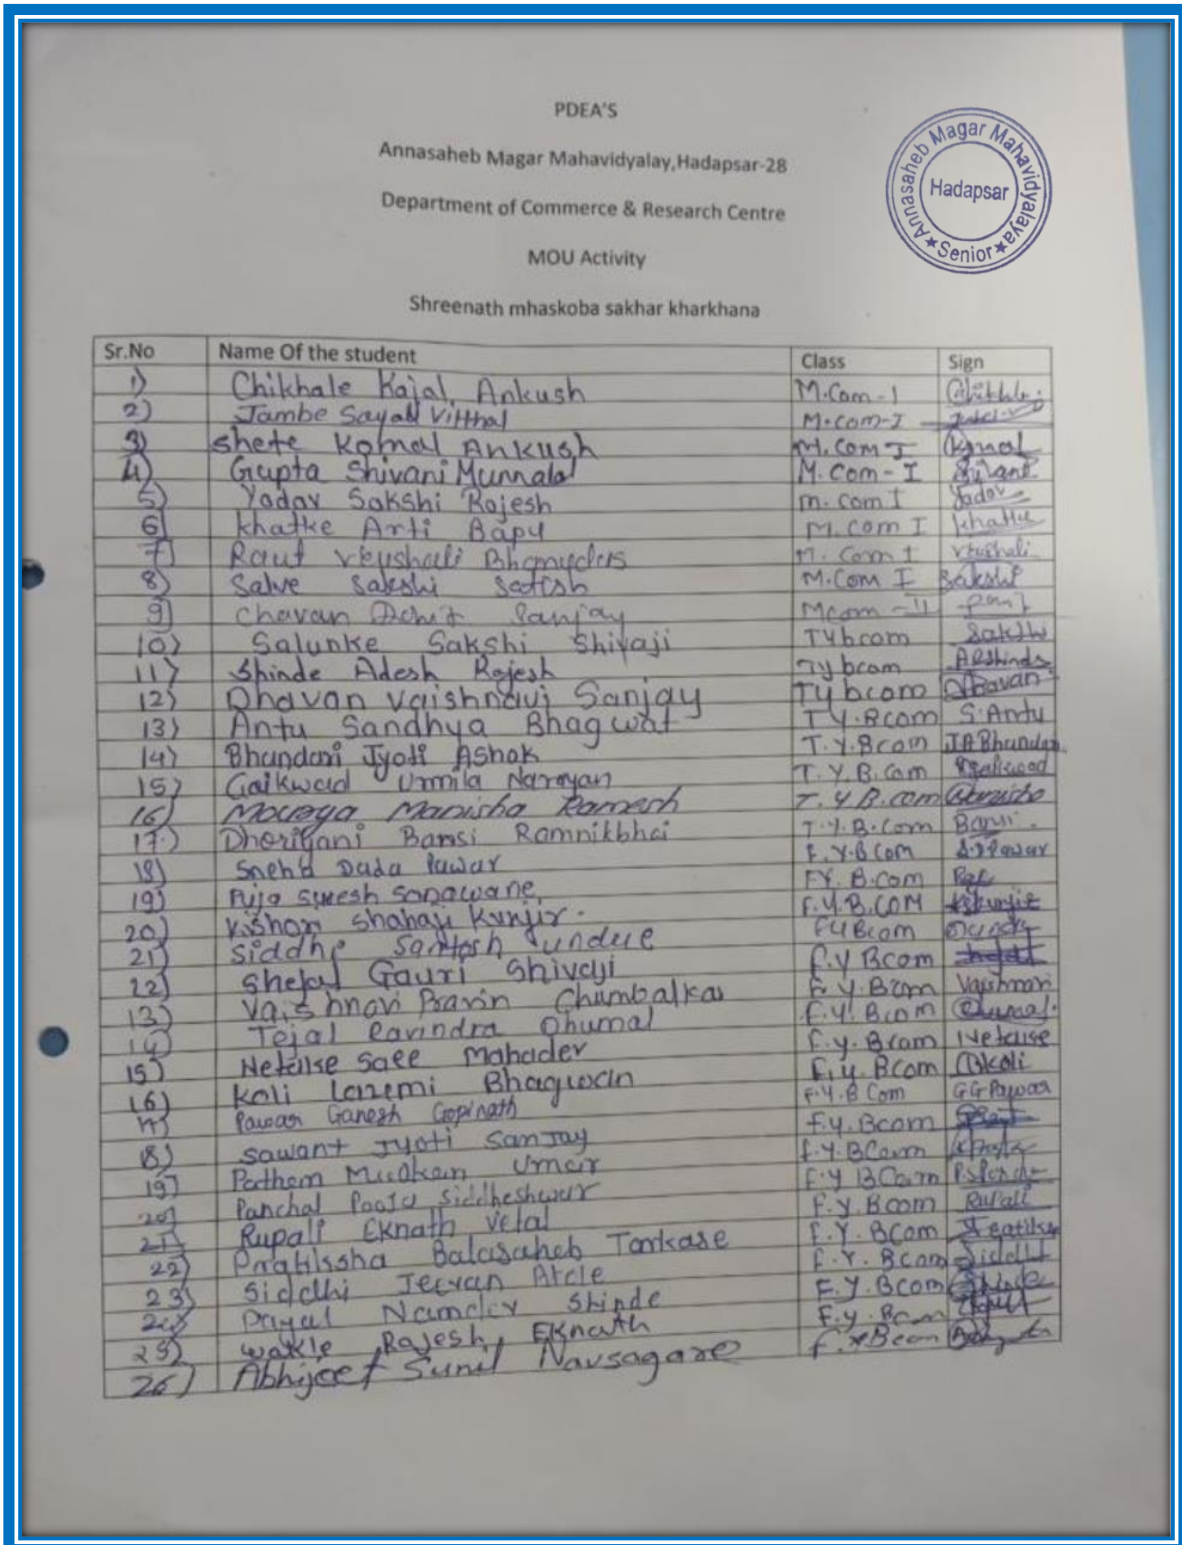 PDEA'S
Annasaheb Magar Mahavidyalay,Hadapsar-28
Department of Commerce & Research Centre
MOU Activity
Shreenath mhaskoba sakhar kharkhana
Annasaheb Magar Mahavidyalaya
Hadapsar
★ Senior ★
Sr.No Name Of the student Class Sign
1) Chikhale Kajal Ankush M.Com-I
2) Jambe Sayali Vitthal M.com-I
3) Shete Komal Ankush M.Com I Komal
4) Gupta Shivani Munnalal M.Com-I
5) Yadav Sakshi Rajesh m.com I Yadav
6) khatke Arti Bapu M.Com I khatke
7) Raut Vaishali M.Com I Vaishali
8) Salve Sakshi Satish M.Com I Sakshi
9) Chavan Sanjay Mcom-II
10) Salunke Sakshi Shivaji TYbcom Sakshi
11) Shinde Adesh Rajesh Tybcom ARShinde
12) Dhavan Vaishnavi Sanjay Tybcom Dhavan
13) Antu Sandhya Bhagwat T.Y.Bcom S.Antu
14) Bhandari Jyoti Ashok T.Y.Bcom J.A.Bhandari
15) Gaikwad Urmila Narayan T.Y.B.Com
16) Mourya Manisha Ramesh T.Y B.com
17) Dhoriyani Bansi Ramnikbhai T.Y.B.Com Bansi
18) Sneha Dada Pawar F.Y.B Com S.D.Pawar
19) Puja Suresh Sonawane F.Y. B.Com
20) Kishor Shahaji Kunjir. F.Y.B.COM
21) Siddhi Santosh Undre F Y Bcom
22) Shejal Gauri Shivaji F.Y Bcom
13) Vaishnavi Pravin Chumbalkar F.Y.Bcom Vaishnavi
14) Tejal Ravindra Dhumal F.Y.Bcom
15) Netake Saee Mahadev F.y.Bcom
16) Koli Laxmi Bhagwan F.y.Bcom Koli
17) Pawar Ganesh Gopinath F.Y.B Com G G Pawar
18) Sawant Jyoti Sanjay F.y.Bcom
19) Pathan Umar F.Y.BCom
20) Panchal Pooja Siddheshwar F.Y BCom
21) Rupali Eknath Velal F.Y.Bcom Rupali
22) Balasaheb Tamkase F.Y.BCom
23) Siddhi Jeevan Atole F.Y.Bcom Siddhi
24) Payal Namdev Shinde F.Y.Bcom
25) Wakle Rajesh Eknath F.y.Bcom
26) Abhijeet Sunil Navsagare F.Y Bcom